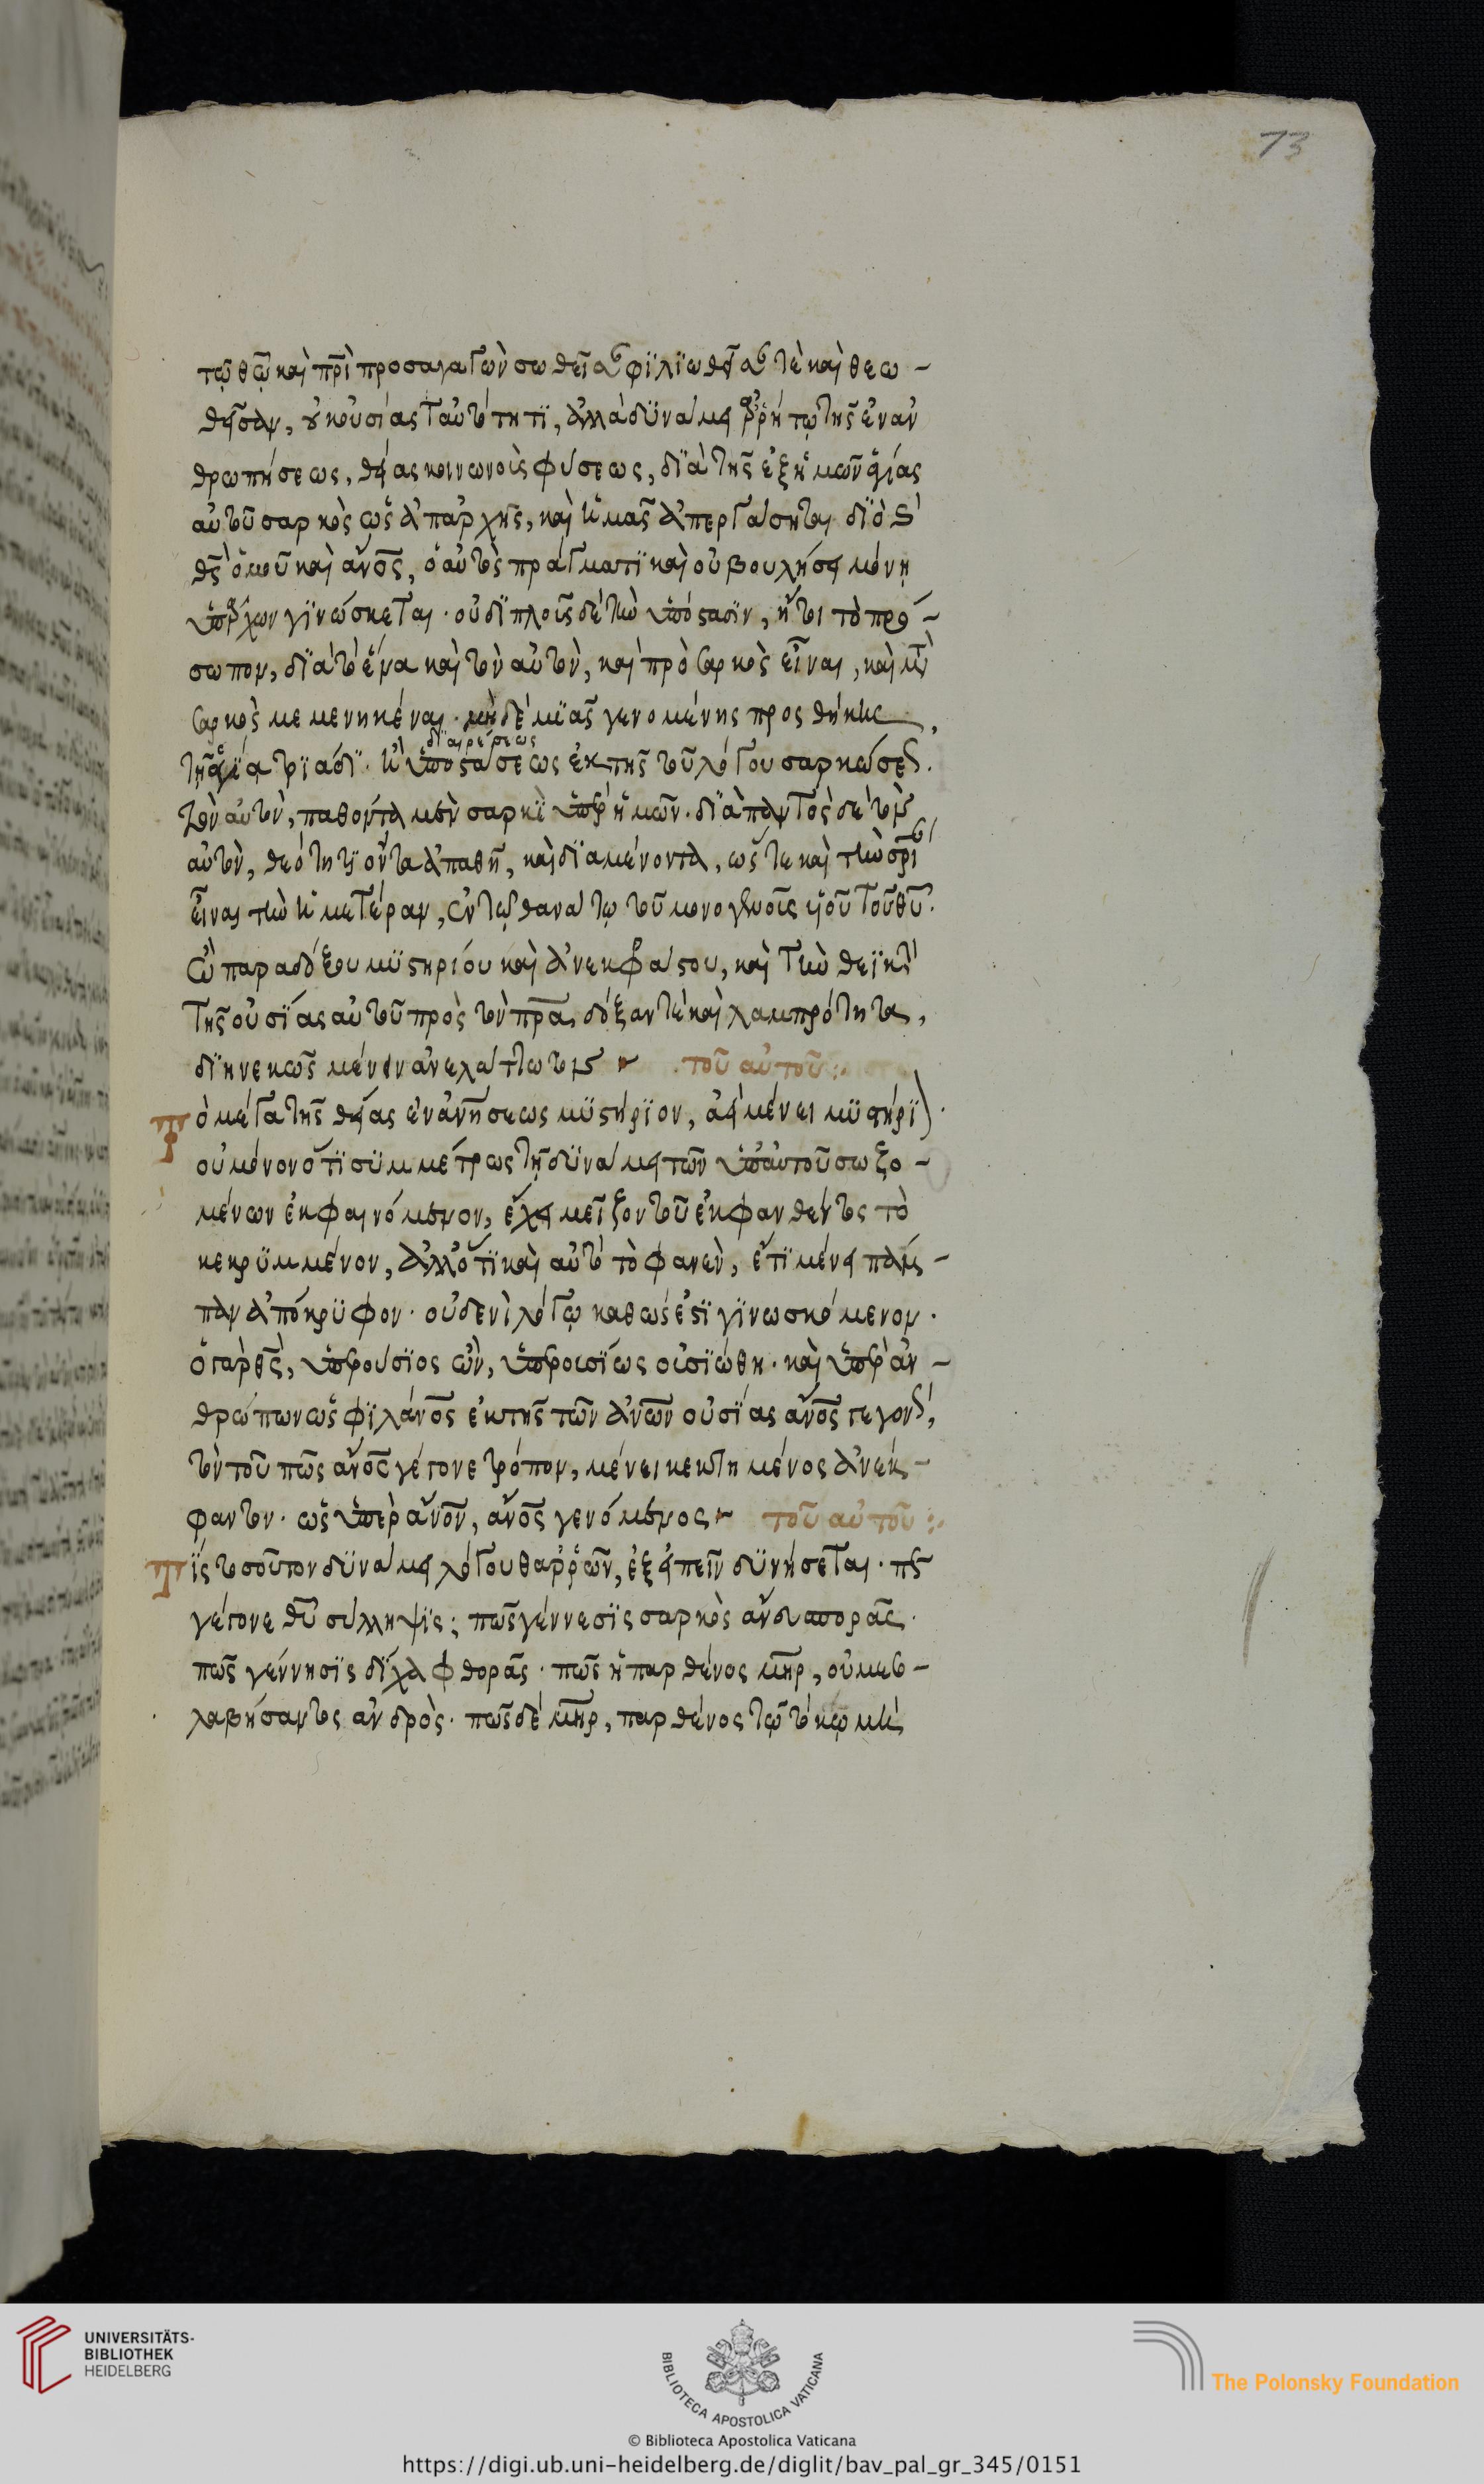 73
τῷ θῶ καὶ πρὶ προσαγαγὼν σωθεῖσαν φιλιωθεῖσαν τὲ καὶ θεω-
θεῖσαν, οὐκ οὐσίας ταυτότητι, ἀλλὰ δυνάμει ἀρρήτω τῆς ἐναν
θρωπήσεως, θείας κοινωνοὺς φύσεως, διὰ τῆς ἐξ ἡμῶν ἁγίας
αὐτοῦ σαρκὸς ὡς ἀπαρχῆς, καὶ ἡμᾶς ἀπεργάσηται διὸ
θς ὁμοῦ καὶ ἄνος, ὁ αὐτὸς πράγματι καὶ οὐ βουλήσει μόνη
ὑπάρχων γινώσκεται. οὐ διπλοῦς δὲ τὴν ὑπόστασιν, ἤτοι τὸ πρό-
σωπον, διὰ τὸ ἕνα καὶ τὸν αὐτὸν, καὶ πρὸ σαρκὸς εἶναι, καὶ μετὰ
σαρκὸς μεμενηκέναι. μηδὲ μιᾶς γενομένης προσθήκης,
τῆ ἁγία τριάδι. ἢ ὑποστάσεως ἐκ τῆς τοῦ λόγου σαρκώσεως.
διαιρέσεως
τὸν αὐτὸν, παθόντα μὲν σαρκὶ ὑπὲρ ἡμῶν. διὰ παντὸς δὲ τὸν
αὐτὸν, θεότητι ὄντα ἀπαθῆ, καὶ διαμένοντα, ὥστε καὶ τὴν σρίαν
εἶναι τὴν ἡμετέραν, ἐν τῷ θανάτω τοῦ μονογενοῦς υἱοῦ τοῦ θυ.
ὢ παραδόξου μυστηρίου καὶ ἀνεκφράστου, καὶ τὴν θεϊκὴν
τῆς οὐσίας αὐτοῦ πρὸς τὸν πρα, δόξαν τὲ καὶ λαμπρότητα,
διηνεκῶς μένειν ἀνελάττωτον τοῦ αὐτοῦ:
Τὸ μέγα τῆς θείας ἐνανήσεως μυστήριον, ἀεὶ μένει μυστήριον.
οὐ μόνον ὅτι συμμέτρως τῆ δυνάμει τῶν ὑπ' αὐτοῦ σωζο-
μένων ἐκφαινόμενον, ἔχει μεῖζον τοῦ ἐκφανθέντος τὸ
κεκρυμμένον, ἀλλ' ὅτι καὶ αὐτὸ τὸ φανὲν, ἔτι μένει πάμ-
παν ἀπόκρυφον. οὐδενὶ λόγω καθώς ἐστι γινωσκόμενον.
ὁ γὰρ θς, ὑπερούσιος ὢν, ὑπερουσίως οὐσιώθη. καὶ ὑπὲρ ἀν-
θρώπων ὡς φιλάνος ἐκ τῆς τῶν ἀνων οὐσίας ἄνος γεγονὼς,
τὸν τοῦ πῶς ἄνος γέγονε τρόπον, μένει κεκτημένος ἀνέκ-
φαντον. ὡς ὑπὲρ ἄνον, ἄνος γενόμενος τοῦ αὐτοῦ:
Τίς τοσοῦτον δυνάμει λόγου θαρρῶν, ἐξειπεῖν δυνήσεται. πῶς
γέγονε θυ σύλληψις; πῶς γέννεσις σαρκὸς ἄνευ σπορᾶς.
πῶς γέννησις δίχα φθορᾶς. πῶς ἡ παρθένος μηρ, οὐ μεσο-
λαβήσαντος ἀνδρὸς. πῶς δὲ μηρ, παρθένος τῷ τόκῳ μὴ
UNIVERSITÄTS-
BIBLIOTHEK
HEIDELBERG
BIBLIOTECA APOSTOLICA VATICANA
The Polonsky Foundation
© Biblioteca Apostolica Vaticana
https://digi.ub.uni-heidelberg.de/diglit/bav_pal_gr_345/0151